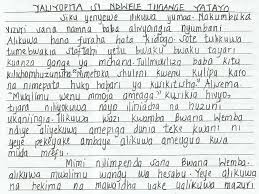 YALIYOPITA SI NDWELE TUGANGE YATAYO
Siku yenyewe ilikuwa ijumaa. Nakumbuka
vizuri sana namna baba alivyoingia nyumbani
Alikuwa hana furaha hata kidogo. Sote tulikuwa
tumebwakia staftahi yetu bwaku bwaku tayari
kuanza ganga ya mchana. Tulimuliza baba kitu
kilichomhuzunisha. "Nimetoka shuleni kwenu kulipa karo
na nimepata huko habari ya kusikitisha." Alisema
"Mwalimu wenu mmoja ameaga" kwikwi hivyo
tijara nilivyokuwa niliiacha na huzuni
ukaniingia. Ilikuwa wazi kwamba Bwana Wemba
ndiye aliyekuwa amepiga dunia teke kwani ni
yeye pekeyake ambaye alikuwa ameugua kwa
muda mrefu.
Mimi nilimpenda sana Bwana Wemba
alikuwa mwalimu wangu wa hesabu. Yeye alikuwa
na maneno na mawaidha yake yalikuwa mazuri